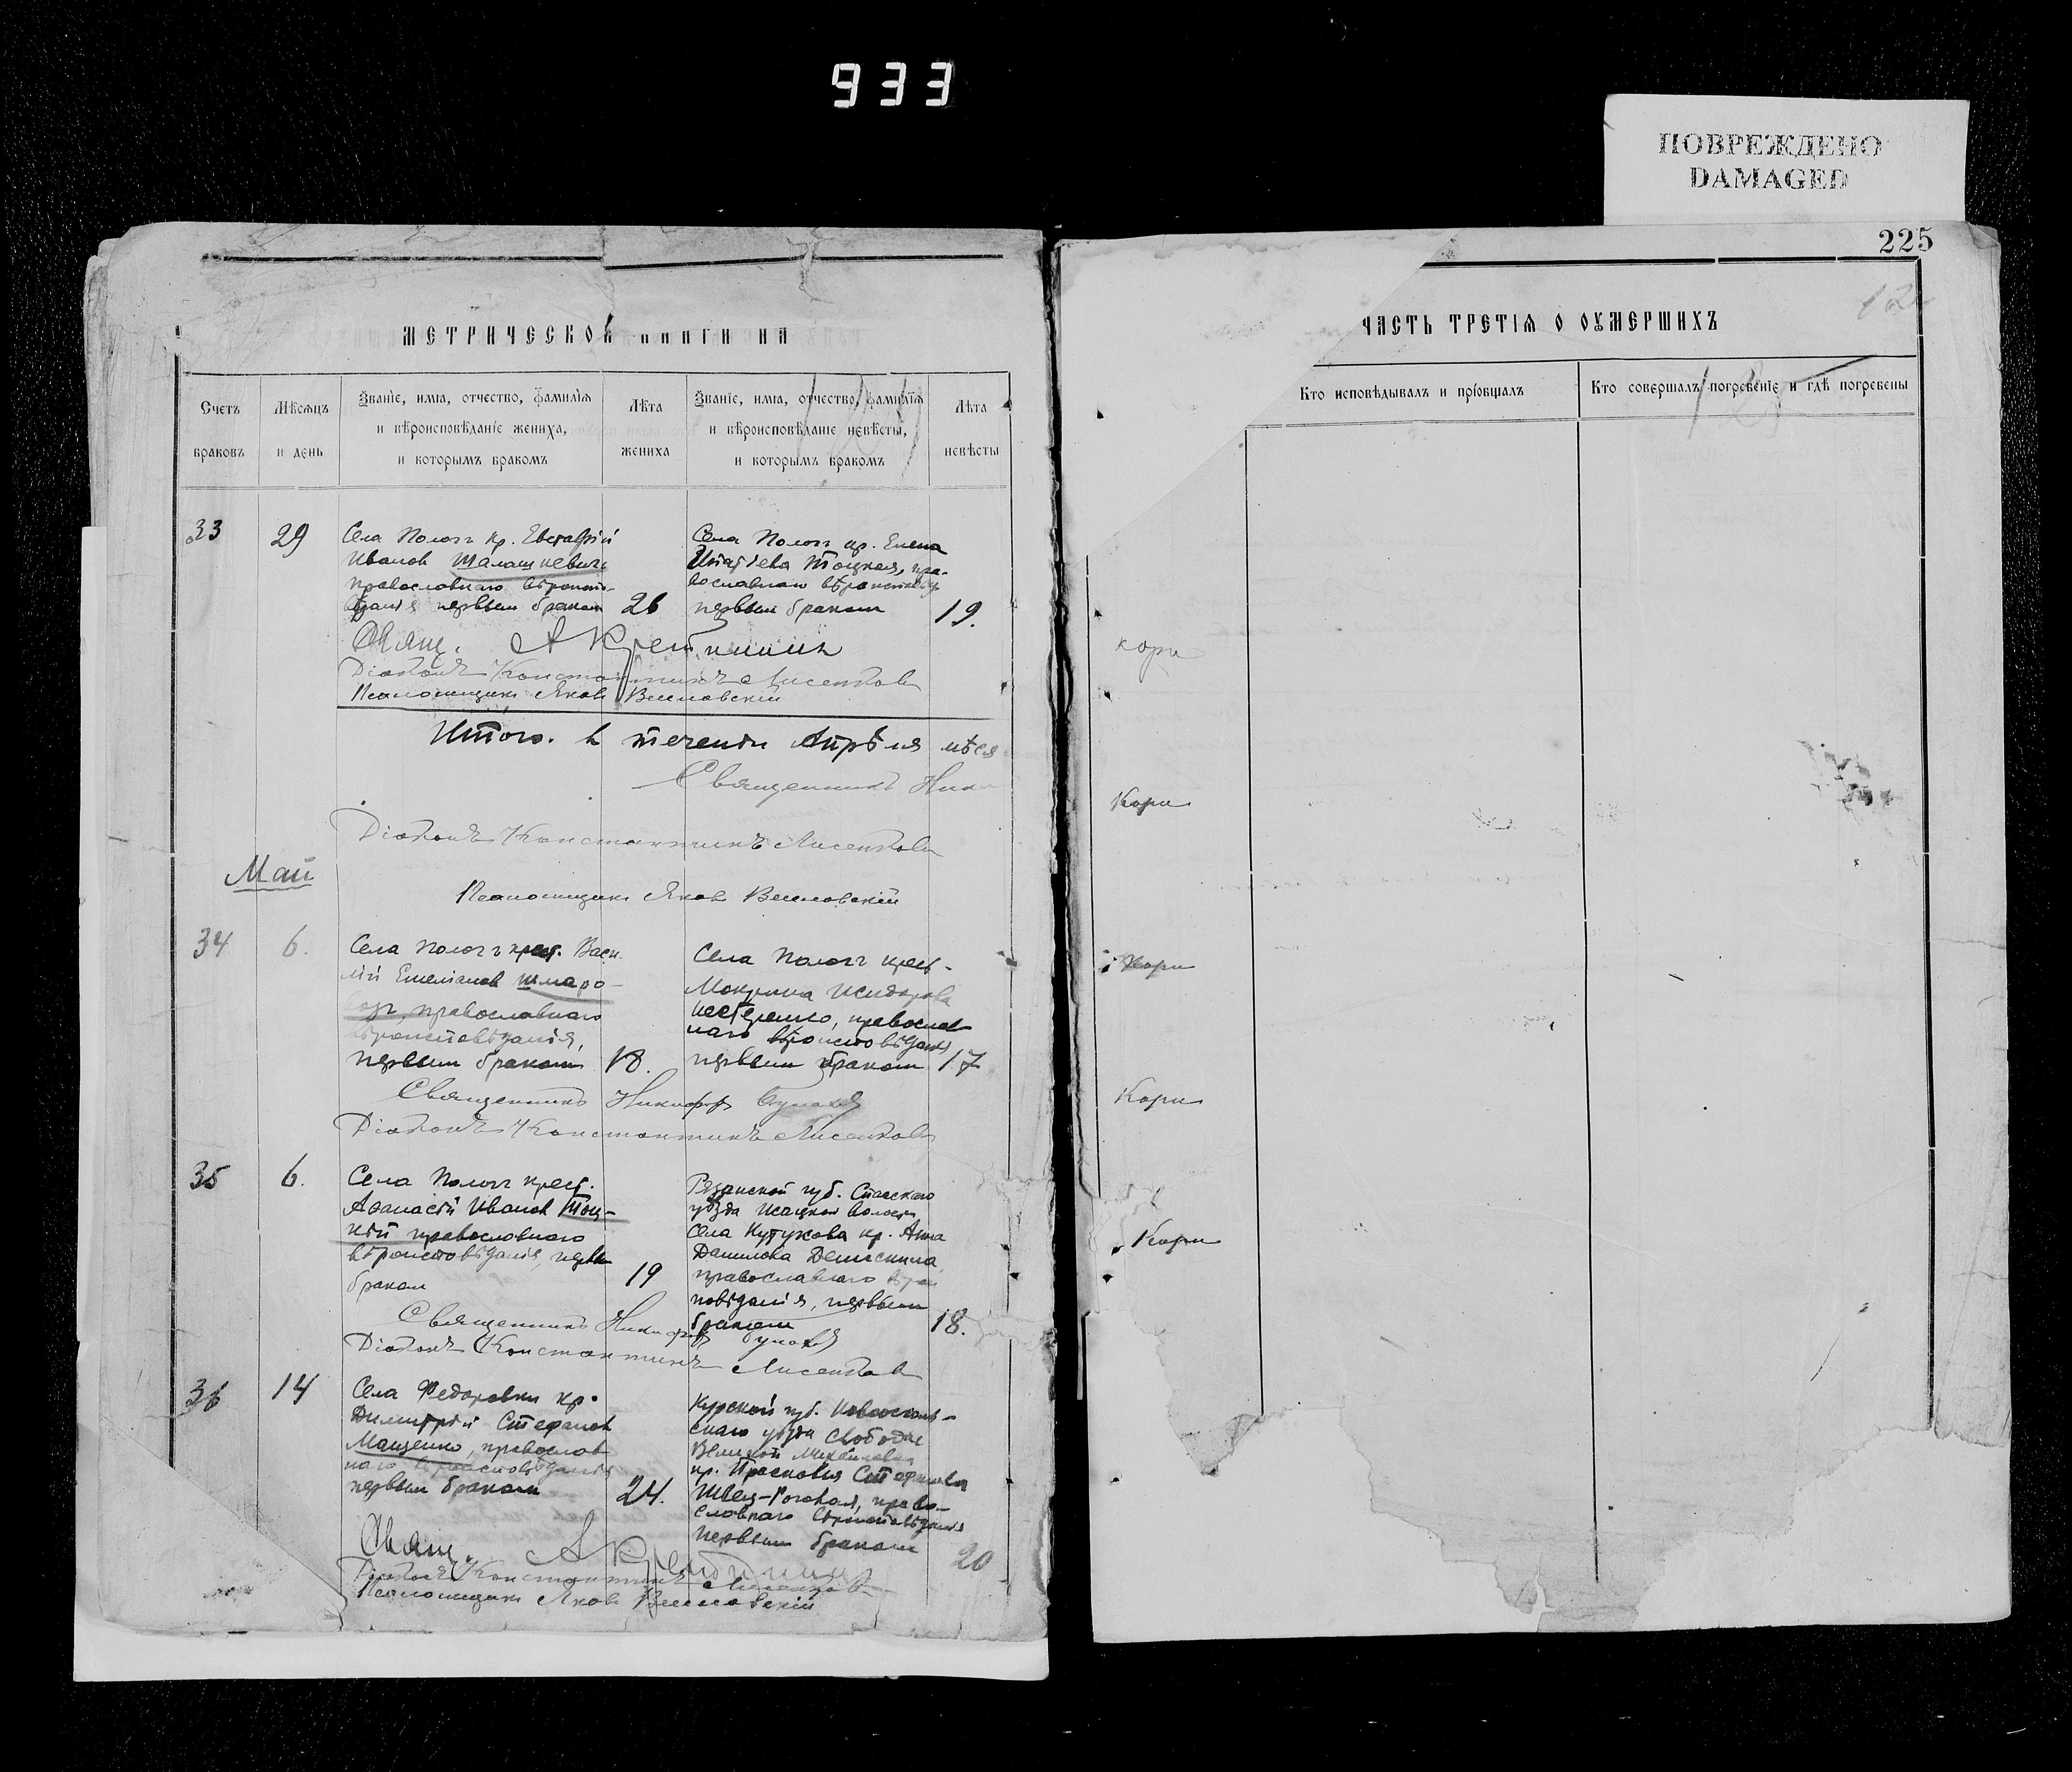 933
ПОВРЕЖДЕНО
DAMAGED
МЕТРИЧЕСКОЙ КНИГИ НА
Счетъ браковъ
Мѣсяцъ и день
Званіе, имя, отчество, фамилія
и вѣроисповѣданіе жениха,
и которымъ бракомъ
Лѣта жениха
Званіе, имя, отчество, фамилія
и вѣроисповѣданіе невѣсты,
и которымъ бракомъ
Лѣта невѣсты
33
29
Села Пологъ кр. Евстафій
Иванов Шаламкевич
православнаго вѣроиспо-
вѣданія первым браком
26
Села Пологъ кр. Елена
Игнатіева Тоцкая, пра-
вославнаго
первым браком
19.
Свящ. А
Діаконъ Константинъ Лисенков
Псаломщикъ Яков
Итого. в теченіи Апрѣля мѣся
Священникъ Ники
Діаконъ Константинъ Лисенков
Май
Псаломщикъ Яков
34
6.
Села Пологъ крест. Васи-
лій Емеліанов Шмаро-
воз, православнаго
вѣроисповѣданія,
первым браком
18.
Села Пологъ крест.
Мокрина Исидорова
Нестеренко, православ-
наго вѣроисповѣданія
первым браком
17
Священникъ Никифоръ
Діаконъ Константинъ Лисенков
35
6.
Села Пологъ крест.
Афанасій Иванов Тоц-
кій православнаго
вѣроисповѣданія, первым
браком
19
Рязанской губ. Спасскаго
уѣзда Исацкой волости
села Кутукова кр. Анна
Данилова Денискина
православнаго вѣрои
повѣданія, первым
браком
18.
Священникъ Никифоръ
Діаконъ Константинъ
Лисенков
36
14
Села Федоровки кр.
Димитрій Стефанов
Мащенко, православ-
наго вѣроисповѣданія
первым браком
24.
Курской губ. Новооскольс-
скаго уѣзда Слободы
Великой Михайловки
кр. Прасковія Стефанова
Швец-Роговая, право-
славнаго вѣроисповѣданія
первым браком
20
Свящ. А
Діаконъ Константинъ Лисенков
Псаломщикъ Яков
225
ЧАСТЬ ТРЕТІЯ О ОУМЕРШИХЪ
Кто исповѣдывалъ и пріобщалъ
Кто совершалъ погребеніе и гдѣ погребены
кори
Кори
Кори
Кори
Кори